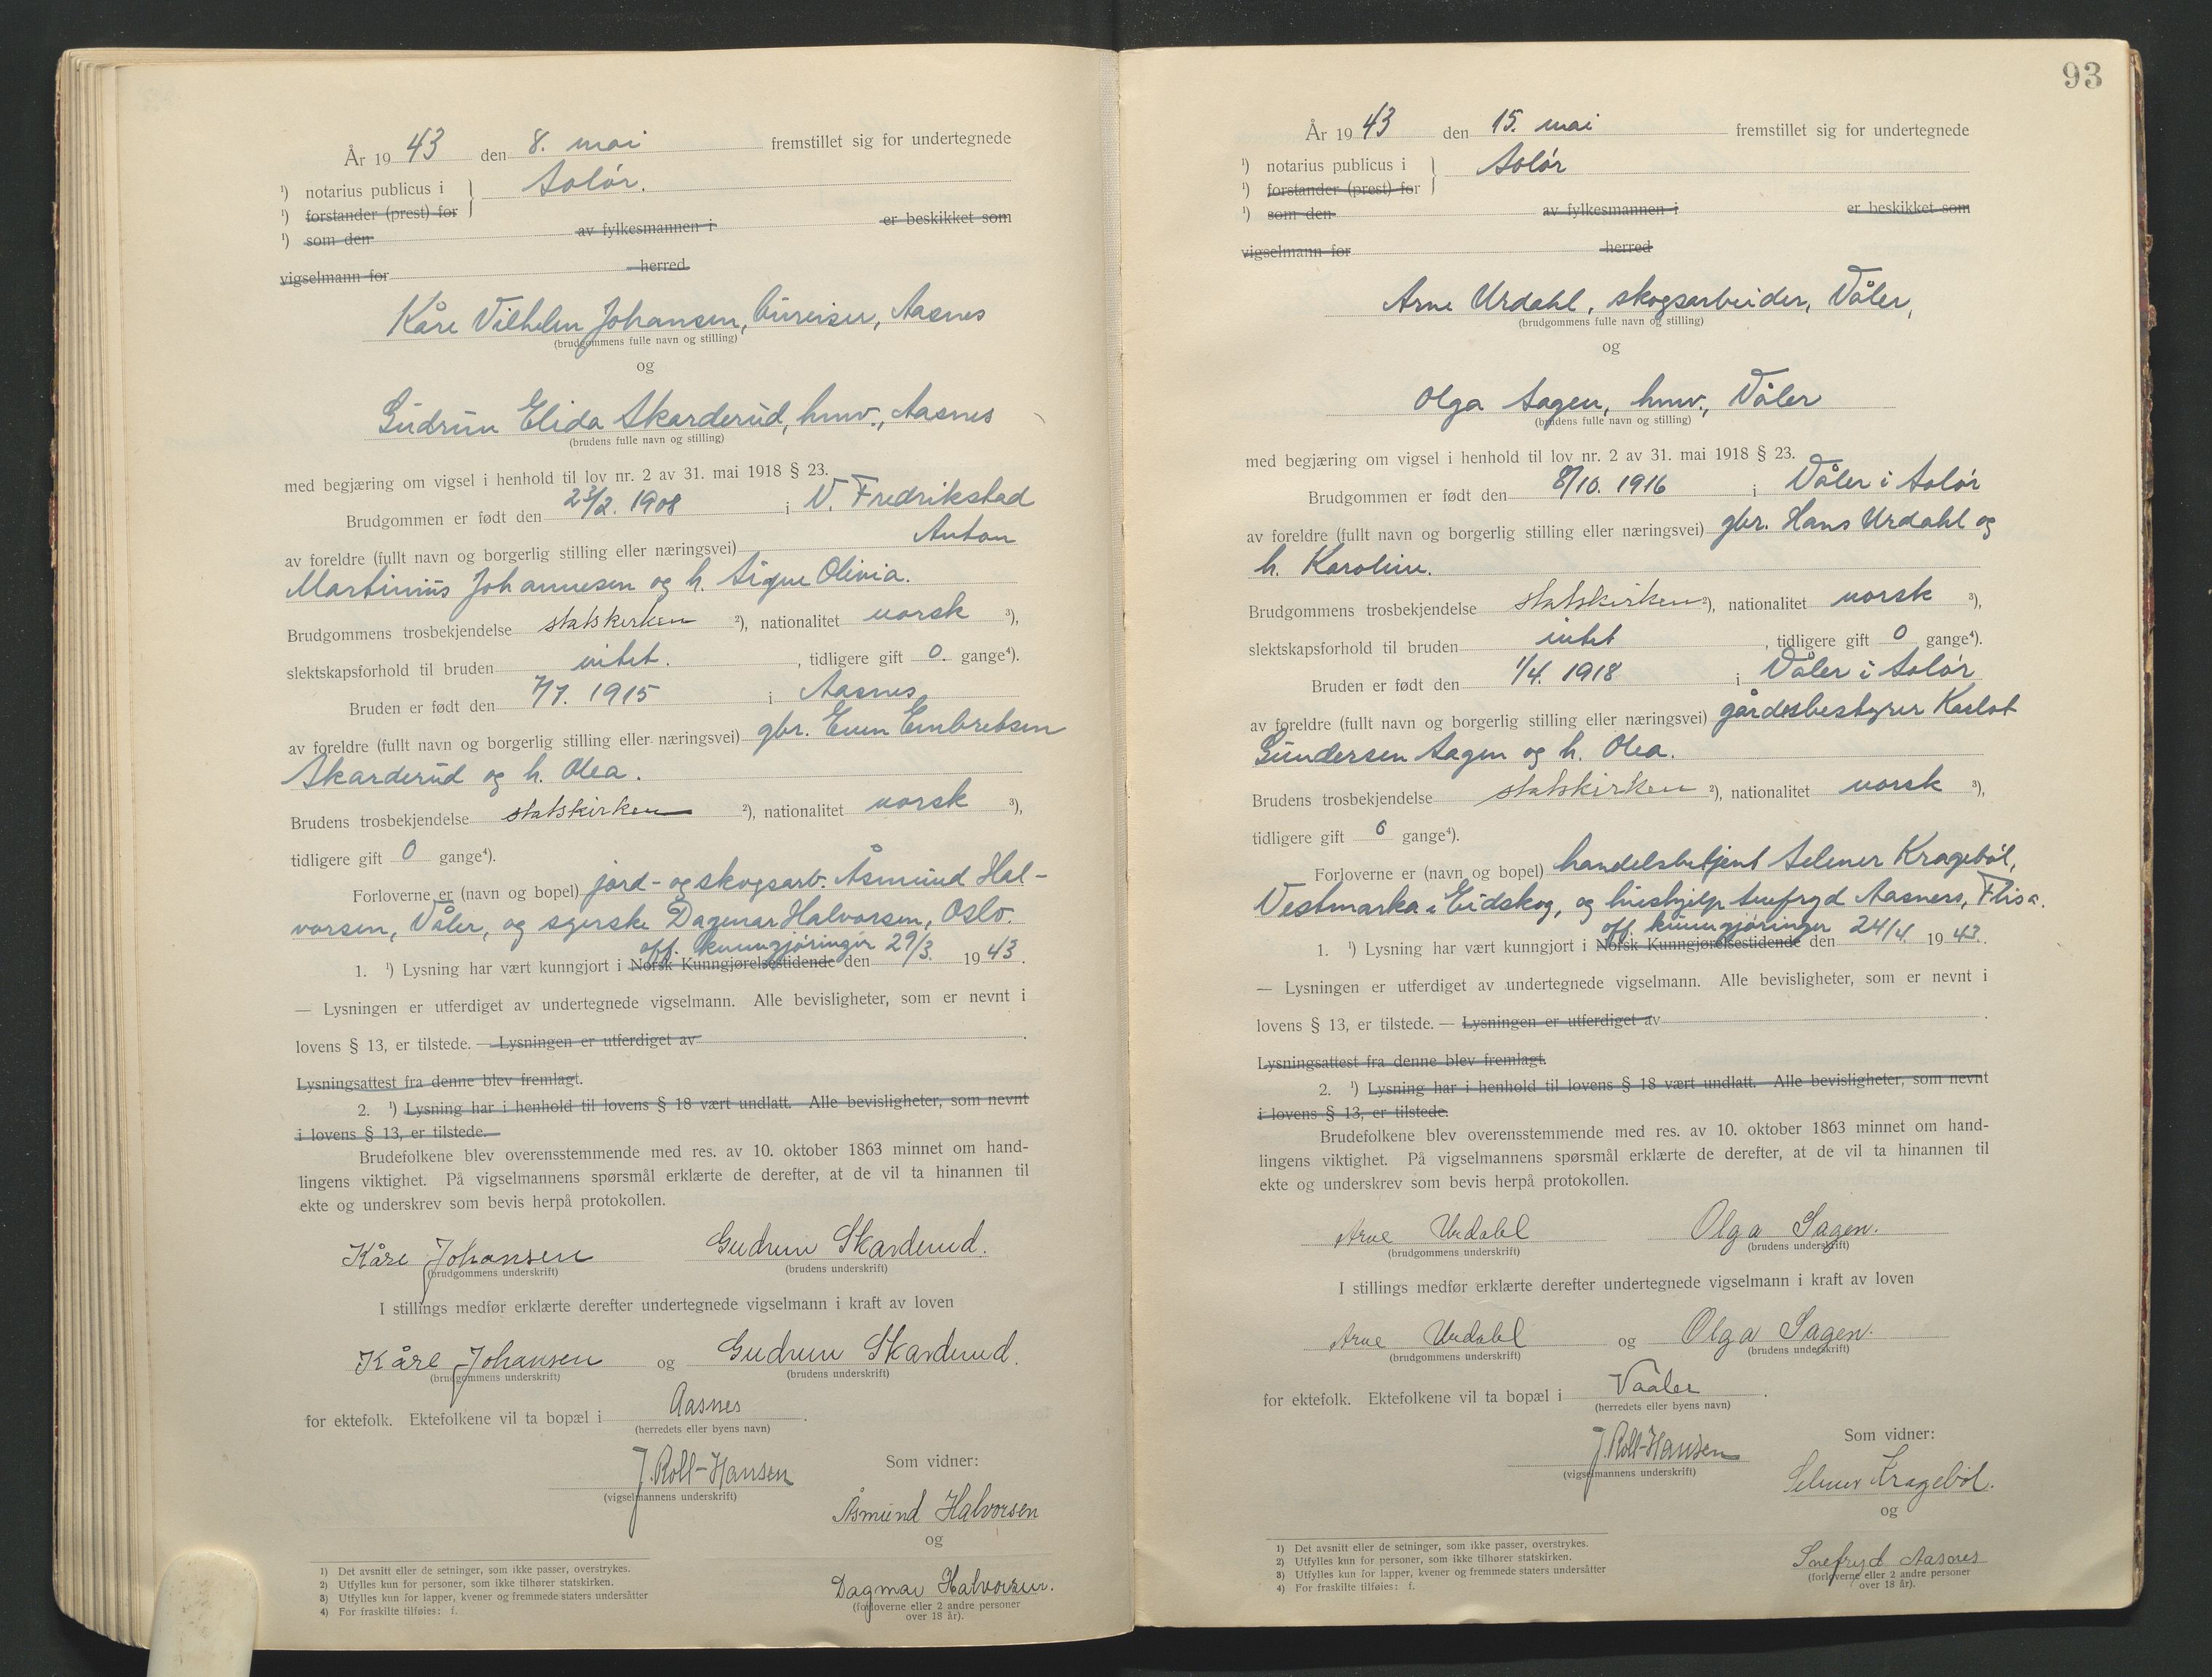 År 19 43 den 8. mai fremstillet sig for undertegnede
¹) notarius publicus i } Solør.
¹) forstander (prest) for
¹) som den av fylkesmannen i er beskikket som
vigselmann for herred
Kåre Vilhelm Johansen, bureiser, Aasnes
(brudgommens fulle navn og stilling)
og
Gudrun Elida Skarderud, hmv., Aasnes
(brudens fulle navn og stilling)
med begjæring om vigsel i henhold til lov nr. 2 av 31. mai 1918 § 23.
Brudgommen er født den 23/2. 1908 i V. Fredrikstad
av foreldre (fullt navn og borgerlig stilling eller næringsvei) Anton
Martinius Johannesen og h. Signe Olivia.
Brudgommens trosbekjendelse statskirken ²), nationalitet norsk ³),
slektskapsforhold til bruden intet. , tidligere gift 0. gange⁴).
Bruden er født den 7/7. 1915 i Aasnes
av foreldre (fullt navn og borgerlig stilling eller næringsvei) gbr. Even Embretsen
Skarderud og h. Olea.
Brudens trosbekjendelse statskirken ²), nationalitet norsk ³),
tidligere gift 0 gange⁴).
Forloverne er (navn og bopel) jord- og skogsarb. Åsmund Hal-
vorsen, Våler, og syerske Dagmar Halvorsen, Oslo.
off. kunngjøringer
1. ¹) Lysning har vært kunngjort i Norsk Kunngjørelsestidende den 29/3. 19 43.
— Lysningen er utferdiget av undertegnede vigselmann. Alle bevisligheter, som er nevnt i
lovens § 13, er tilstede. — Lysningen er utferdiget av .
Lysningsattest fra denne blev fremlagt.
2. ¹) Lysning har i henhold til lovens § 18 vært undlatt. Alle bevisligheter, som nevnt
i lovens § 13, er tilstede.
Brudefolkene blev overensstemmende med res. av 10. oktober 1863 minnet om hand-
lingens viktighet. På vigselmannens spørsmål erklærte de derefter, at de vil ta hinannen til
ekte og underskrev som bevis herpå protokollen.
Kåre Johansen Gudrun Skarderud.
(brudgommens underskrift) (brudens underskrift)
I stillings medfør erklærte derefter undertegnede vigselmann i kraft av loven
Kåre Johansen og Gudrun Skarderud.
(brudgommens underskrift) (brudens underskrift)
for ektefolk. Ektefolkene vil ta bopæl i Aasnes .
(herredets eller byens navn)
J. Roll-Hansen
(vigselmannens underskrift)
Som vidner:
Åsmund Halvorsen
og
Dagmar Halvorsen.
(forloverne eller 2 andre personer
over 18 år).
1) Det avsnitt eller de setninger, som ikke passer, overstrykes.
2) Utfylles kun for personer, som ikke tilhører statskirken.
3) Utfylles kun for lapper, kvener og fremmede staters undersåtter
4) For fraskilte tilføies: f.
93
År 19 43 den 15. mai fremstillet sig for undertegnede
¹) notarius publicus i } Solør
¹) forstander (prest) for
¹) som den av fylkesmannen i er beskikket som
vigselmann for herred
Arne Urdahl, skogsarbeider, Våler,
(brudgommens fulle navn og stilling)
og
Olga Sagen, hmv., Våler
(brudens fulle navn og stilling)
med begjæring om vigsel i henhold til lov nr. 2 av 31. mai 1918 § 23.
Brudgommen er født den 8/10. 1916 i Våler i Solør
av foreldre (fullt navn og borgerlig stilling eller næringsvei) gbr. Hans Urdahl og
h. Karoline.
Brudgommens trosbekjendelse statskirken ²), nationalitet norsk ³),
slektskapsforhold til bruden intet , tidligere gift 0 gange⁴).
Bruden er født den 1/4. 1918 i Våler i Solør
av foreldre (fullt navn og borgerlig stilling eller næringsvei) gårdsbestyrer Kaslot
Gundersen Sagen og h. Olea.
Brudens trosbekjendelse statskirken ²), nationalitet norsk ³),
tidligere gift 0 gange⁴).
Forloverne er (navn og bopel) handelsbetjent Selmer Kragebøl,
Vestmarka i Eidskog, og hushjelp Snefryd Aasnes, Flisa.
off. kunngjøringer
1. ¹) Lysning har vært kunngjort i Norsk Kunngjørelsestidende den 24/4. 19 43.
— Lysningen er utferdiget av undertegnede vigselmann. Alle bevisligheter, som er nevnt i
lovens § 13, er tilstede. — Lysningen er utferdiget av .
Lysningsattest fra denne blev fremlagt.
2. ¹) Lysning har i henhold til lovens § 18 vært undlatt. Alle bevisligheter, som nevnt
i lovens § 13, er tilstede.
Brudefolkene blev overensstemmende med res. av 10. oktober 1863 minnet om hand-
lingens viktighet. På vigselmannens spørsmål erklærte de derefter, at de vil ta hinannen til
ekte og underskrev som bevis herpå protokollen.
Arne Urdahl Olga Sagen.
(brudgommens underskrift) (brudens underskrift)
I stillings medfør erklærte derefter undertegnede vigselmann i kraft av loven
Arne Urdahl og Olga Sagen.
(brudgommens underskrift) (brudens underskrift)
for ektefolk. Ektefolkene vil ta bopæl i Vaaler .
(herredets eller byens navn)
J. Roll-Hansen
(vigselmannens underskrift)
Som vidner:
Selmer Kragebøl.
og
Snefryd Aasnes
(forloverne eller 2 andre personer
over 18 år).
1) Det avsnitt eller de setninger, som ikke passer, overstrykes.
2) Utfylles kun for personer, som ikke tilhører statskirken.
3) Utfylles kun for lapper, kvener og fremmede staters undersåtter
4) For fraskilte tilføies: f.